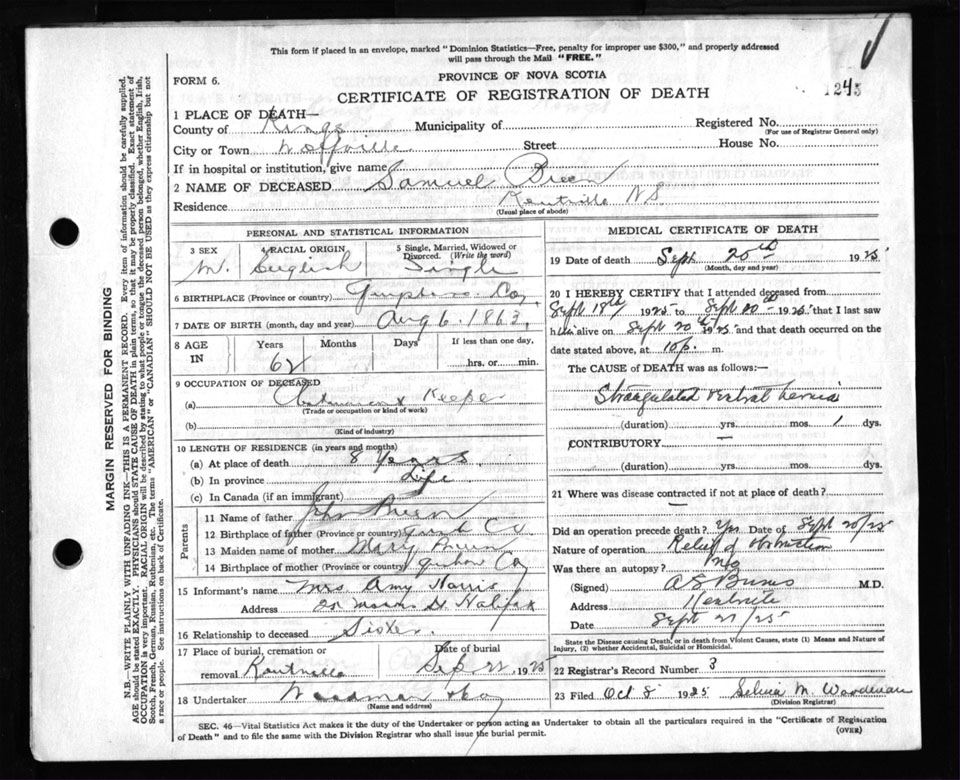 This form if placed in an envelope, marked "Dominion Statistics—Free, penalty for improper use $300," and properly addressed
will pass through the Mail "FREE."
FORM 6.
PROVINCE OF NOVA SCOTIA
CERTIFICATE OF REGISTRATION OF DEATH
1 PLACE OF DEATH—
County of Kings Municipality of Registered No.
(For use of Registrar General only)
City or Town Wolfville Street House No.
If in hospital or institution, give name
2 NAME OF DECEASED Samuel Breen
Residence Kentville N.S.
(Usual place of abode)
PERSONAL AND STATISTICAL INFORMATION
3 SEX 4 RACIAL ORIGIN 5 Single, Married, Widowed or Divorced. (Write the word)
M. English Single
6 BIRTHPLACE (Province or country) Co.
7 DATE OF BIRTH (month, day and year) Aug 6. 1863.
8 AGE IN Years Months Days If less than one day,
62 hrs. or min.
9 OCCUPATION OF DECEASED
(a) Keeper
(Trade or occupation or kind of work)
(b)
(Kind of industry)
10 LENGTH OF RESIDENCE (in years and months)
(a) At place of death 8 Years
(b) In province Life
(c) In Canada (if an immigrant)
Parents
11 Name of father John Breen
12 Birthplace of father (Province or country) Co
13 Maiden name of mother Mary Breen
14 Birthplace of mother (Province or country) Co
15 Informant's name Mrs Amy Harris
Address St. Halifax
16 Relationship to deceased Sister.
17 Place of burial, cremation or removal Kentville Date of burial Sep. 22, 1925
18 Undertaker Woodman & Co
(Name and address)
MEDICAL CERTIFICATE OF DEATH
19 Date of death Sept 20th 1925
(Month, day and year)
20 I HEREBY CERTIFY that I attended deceased from
Sept 18th 1925 to Sept 20th 1925 that I last saw
him alive on Sept 20th 1925 and that death occurred on the
date stated above, at 10 p. m.
The CAUSE of DEATH was as follows:—
Strangulated ventral hernia
(duration) yrs. mos. 1 dys.
CONTRIBUTORY —
(duration) yrs. mos. dys.
21 Where was disease contracted if not at place of death? —
Did an operation precede death? Yes Date of Sept 20/25
Nature of operation Relief of obstruction
Was there an autopsy? No
(Signed) M.D.
Address Kentville
Date Sept 21/25
State the Disease causing Death, or in death from Violent Causes, state (1) Means and Nature of
Injury, (2) whether Accidental, Suicidal or Homicidal.
22 Registrar's Record Number 3
23 Filed Oct 8 1925 M. Woodman
(Division Registrar)
SEC. 46—Vital Statistics Act makes it the duty of the Undertaker or person acting as Undertaker to obtain all the particulars required in the "Certificate of Registration
of Death" and to file the same with the Division Registrar who shall issue the burial permit.
(OVER)
MARGIN RESERVED FOR BINDING
N.B.—WRITE PLAINLY WITH UNFADING INK—THIS IS A PERMANENT RECORD. Every item of information should be carefully supplied.
AGE should be stated EXACTLY. PHYSICIANS should STATE CAUSE OF DEATH in plain terms, so that it may be properly classified. Exact statement of
OCCUPATION is very important. RACIAL ORIGIN will be described by stating to what people or tongue the deceased person belonged, whether English, Irish,
Scotch, French, German, Russian, Ruthenian, etc. The terms "AMERICAN" or "CANADIAN" SHOULD NOT BE USED as they express citizenship but not
a race or people. See instructions on back of Certificate.